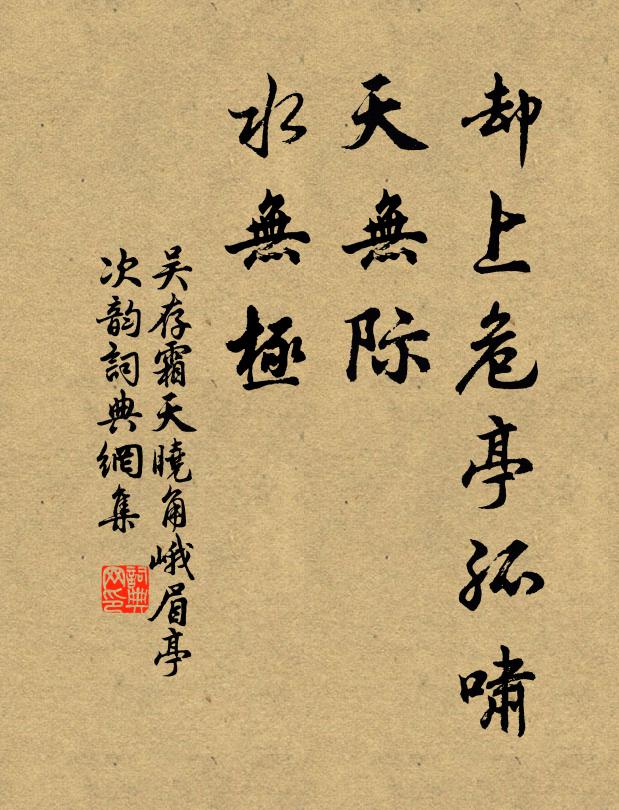 却上危亭孤啸
天無际
水無極
吴存霜天曉角峨眉亭
次韵詞典網集
詞典
网印